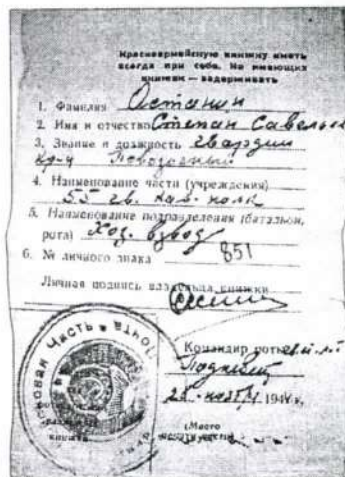 Красноармейскую книжку иметь
всегда при себе. Не имеющих
книжек — задерживать
1. Фамилия Останин
2. Имя и отчество Степан Савельев
3. Звание и должность гвардии
кр-ц
4. Наименование части (учреждения)
55 гв. кав. полк
5. Наименование подразделения (батальон,
рота) Хоз. взвод
6. № личного знака 851
Личная подпись владельца книжки
Командир роты
1944 г.
(Место